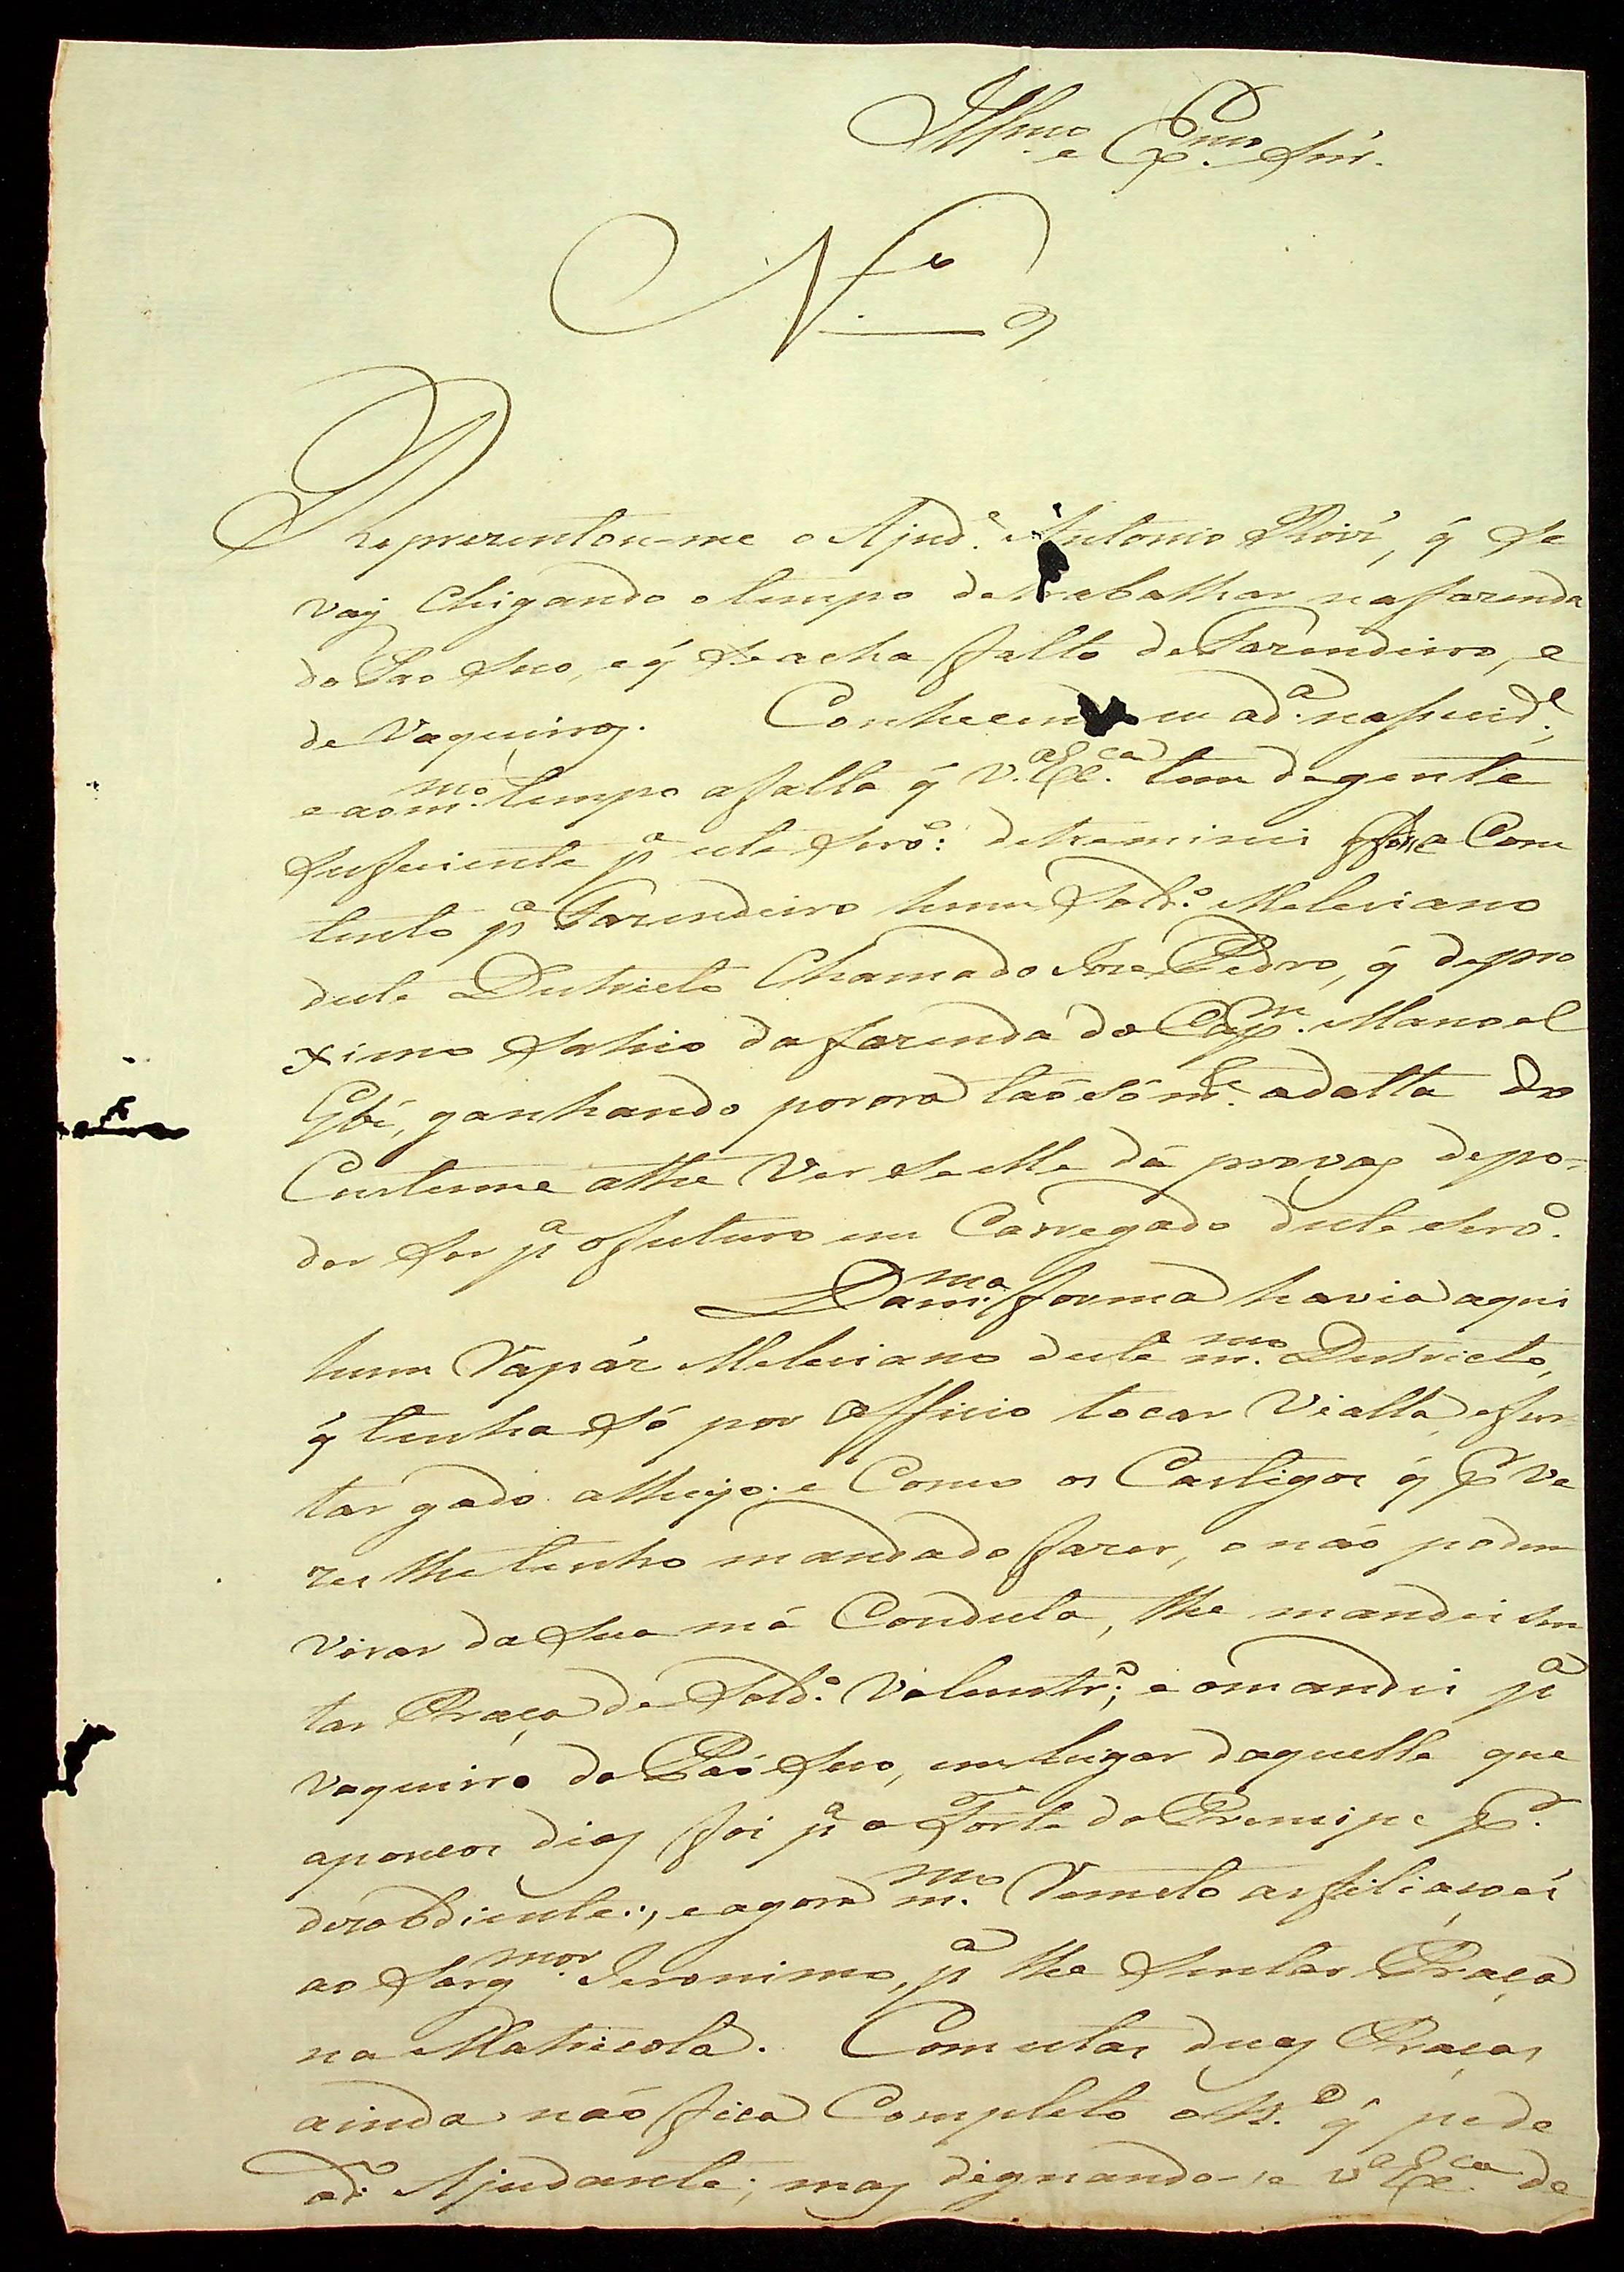 Illmo. e Exmo. Snr.
No. 9
Reprezentou-me o Ajude. Antonio Roiz', q̃ se
vay chegando o tempo de trabalhar na fazenda
do Pao Seco, e q̃ se acha falto de Fazendeiro, e
de Vaqueiros. Conhecendo eu a da. nessecide.,
e ao mmo. tempo a falta q̃ V.a Exca. tem de gente
suficiente pa. este servo.: detreminei
tento pa. Fazendeiro hum Soldo. Meleciano
deste Destricto chamado Joze Pedro, q̃ de pro
ximo sahio da fazenda do Capm. Manoel
ganhando por ora tão só me. a data do
Custume athe ver se elle dá provas de po-
der ser pa. o futuro em Carregado deste servo.
Da mma. forma havia aqui
hum Rapáz Meleciano deste mmo. Destricto,
q̃ tinha só por officio tocar Violla, e fur
tar gado alheyo; e como os Castigos q̃ pr. ve
zes lhe tenho mandado fazer, o não podem
virar da sua má Conduta, lhe mandei sen
tar Praça de Soldo. Voluntro.; e o mandei pa.
vaqueiro do Páo Seco, em lugar daquelle que
a poucos dias foi pa. o Forte do Prencipe pr.
dezobdiente:, e agora mmo. Remeto as filiaçoẽs
ao Sargmor. Jeronimo, pa. lhe sentar Praça
na Matricola. Com estas duas Praças
ainda não fica Completo o No. q̃ pede
o do. Ajudante; mas dignando-se V.a Exca. de